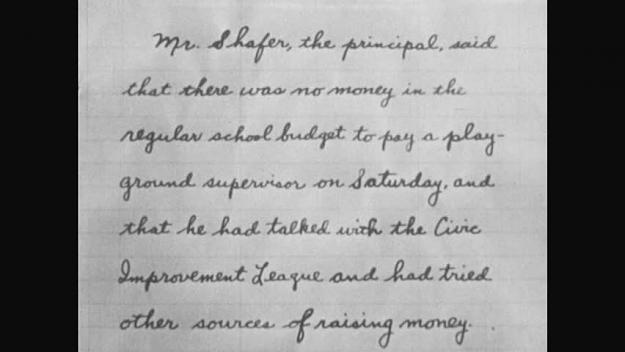 Mr. Shafer, the principal, said
that there was no money in the
regular school budget to pay a play-
ground supervisor on Saturday, and
that he had talked with the Civic
Improvement League and had tried
other sources of raising money.